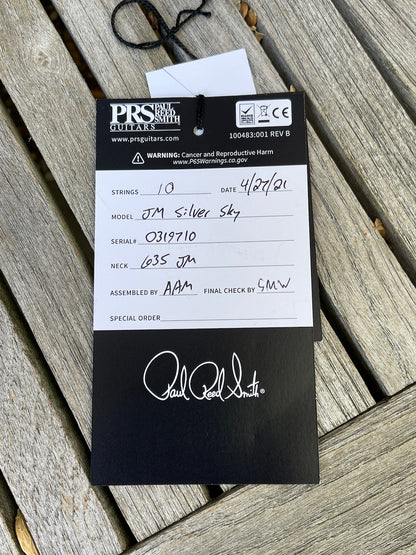 PRS PAUL REED SMITH
GUITARS
www.prsguitars.com
CE
100483:001 REV B
WARNING: Cancer and Reproductive Harm
www.P65Warnings.ca.gov
STRINGS 10 DATE 4/27/21
MODEL JM Silver Sky
SERIAL# 0319710
NECK 635 JM
ASSEMBLED BY AAM FINAL CHECK BY SMW
SPECIAL ORDER
Paul Reed Smith®